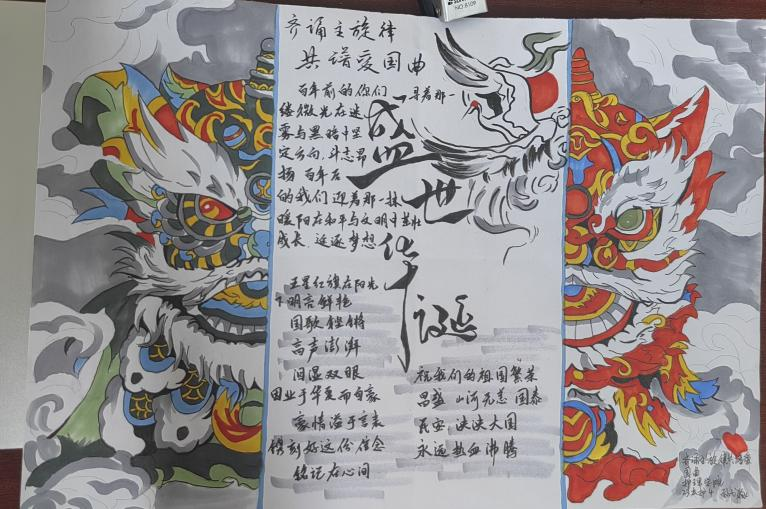 NO.8109
齐诵主旋律
共谱爱国曲
百年前的你们
寻着那一
缕微光在迷
雾与黑暗中坚
定方向,斗志昂
扬 百年后
的我们迎着那一抹
暖阳在和平与文明中茁壮
成长、逐梦想
盛世华诞
五星红旗在阳光
下明亮鲜艳
国歌铿锵
高声澎湃
泪湿双眼
因业于华夏而自豪
豪情溢于言表
镌刻好这份信念
铭记在心间
祝我们的祖国繁荣
昌盛 山河无恙 国泰
民安 泱泱大国
永远热血沸腾